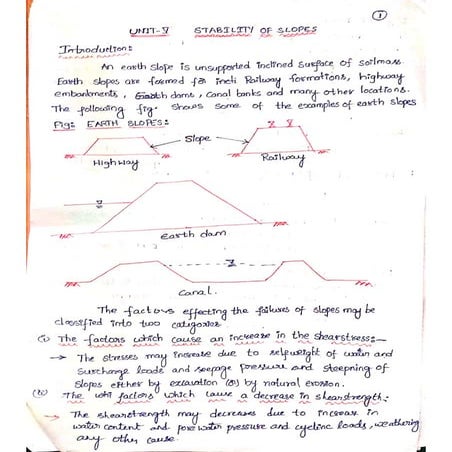 1
UNIT-V STABILITY OF SLOPES
Introduction:
An earth slope is unsupported inclined surface of soilmass.
Earth slopes are formed for Railway formations, highway
embankments, Earth dams, canal banks and many other locations.
The following fig. shows some of the examples of earth slopes
Fig: EARTH SLOPES:
Slope
Highway
Railway
Earth dam
Canal.
The factors effecting the failures of slopes may be
classified into two categories
(1) The factors which cause an increase in the shearstress:-
→ The stresses may increase due to selfweight of water and
surcharge loads and seepage pressure and steepning of
slopes either by excavation (or) by natural erosion.
The factors which cause a decrease in shearstrength:
→ The shearstrength may decreases due to increase in
water content and pore water pressure and cyclinc loads, weathering
any other cause.